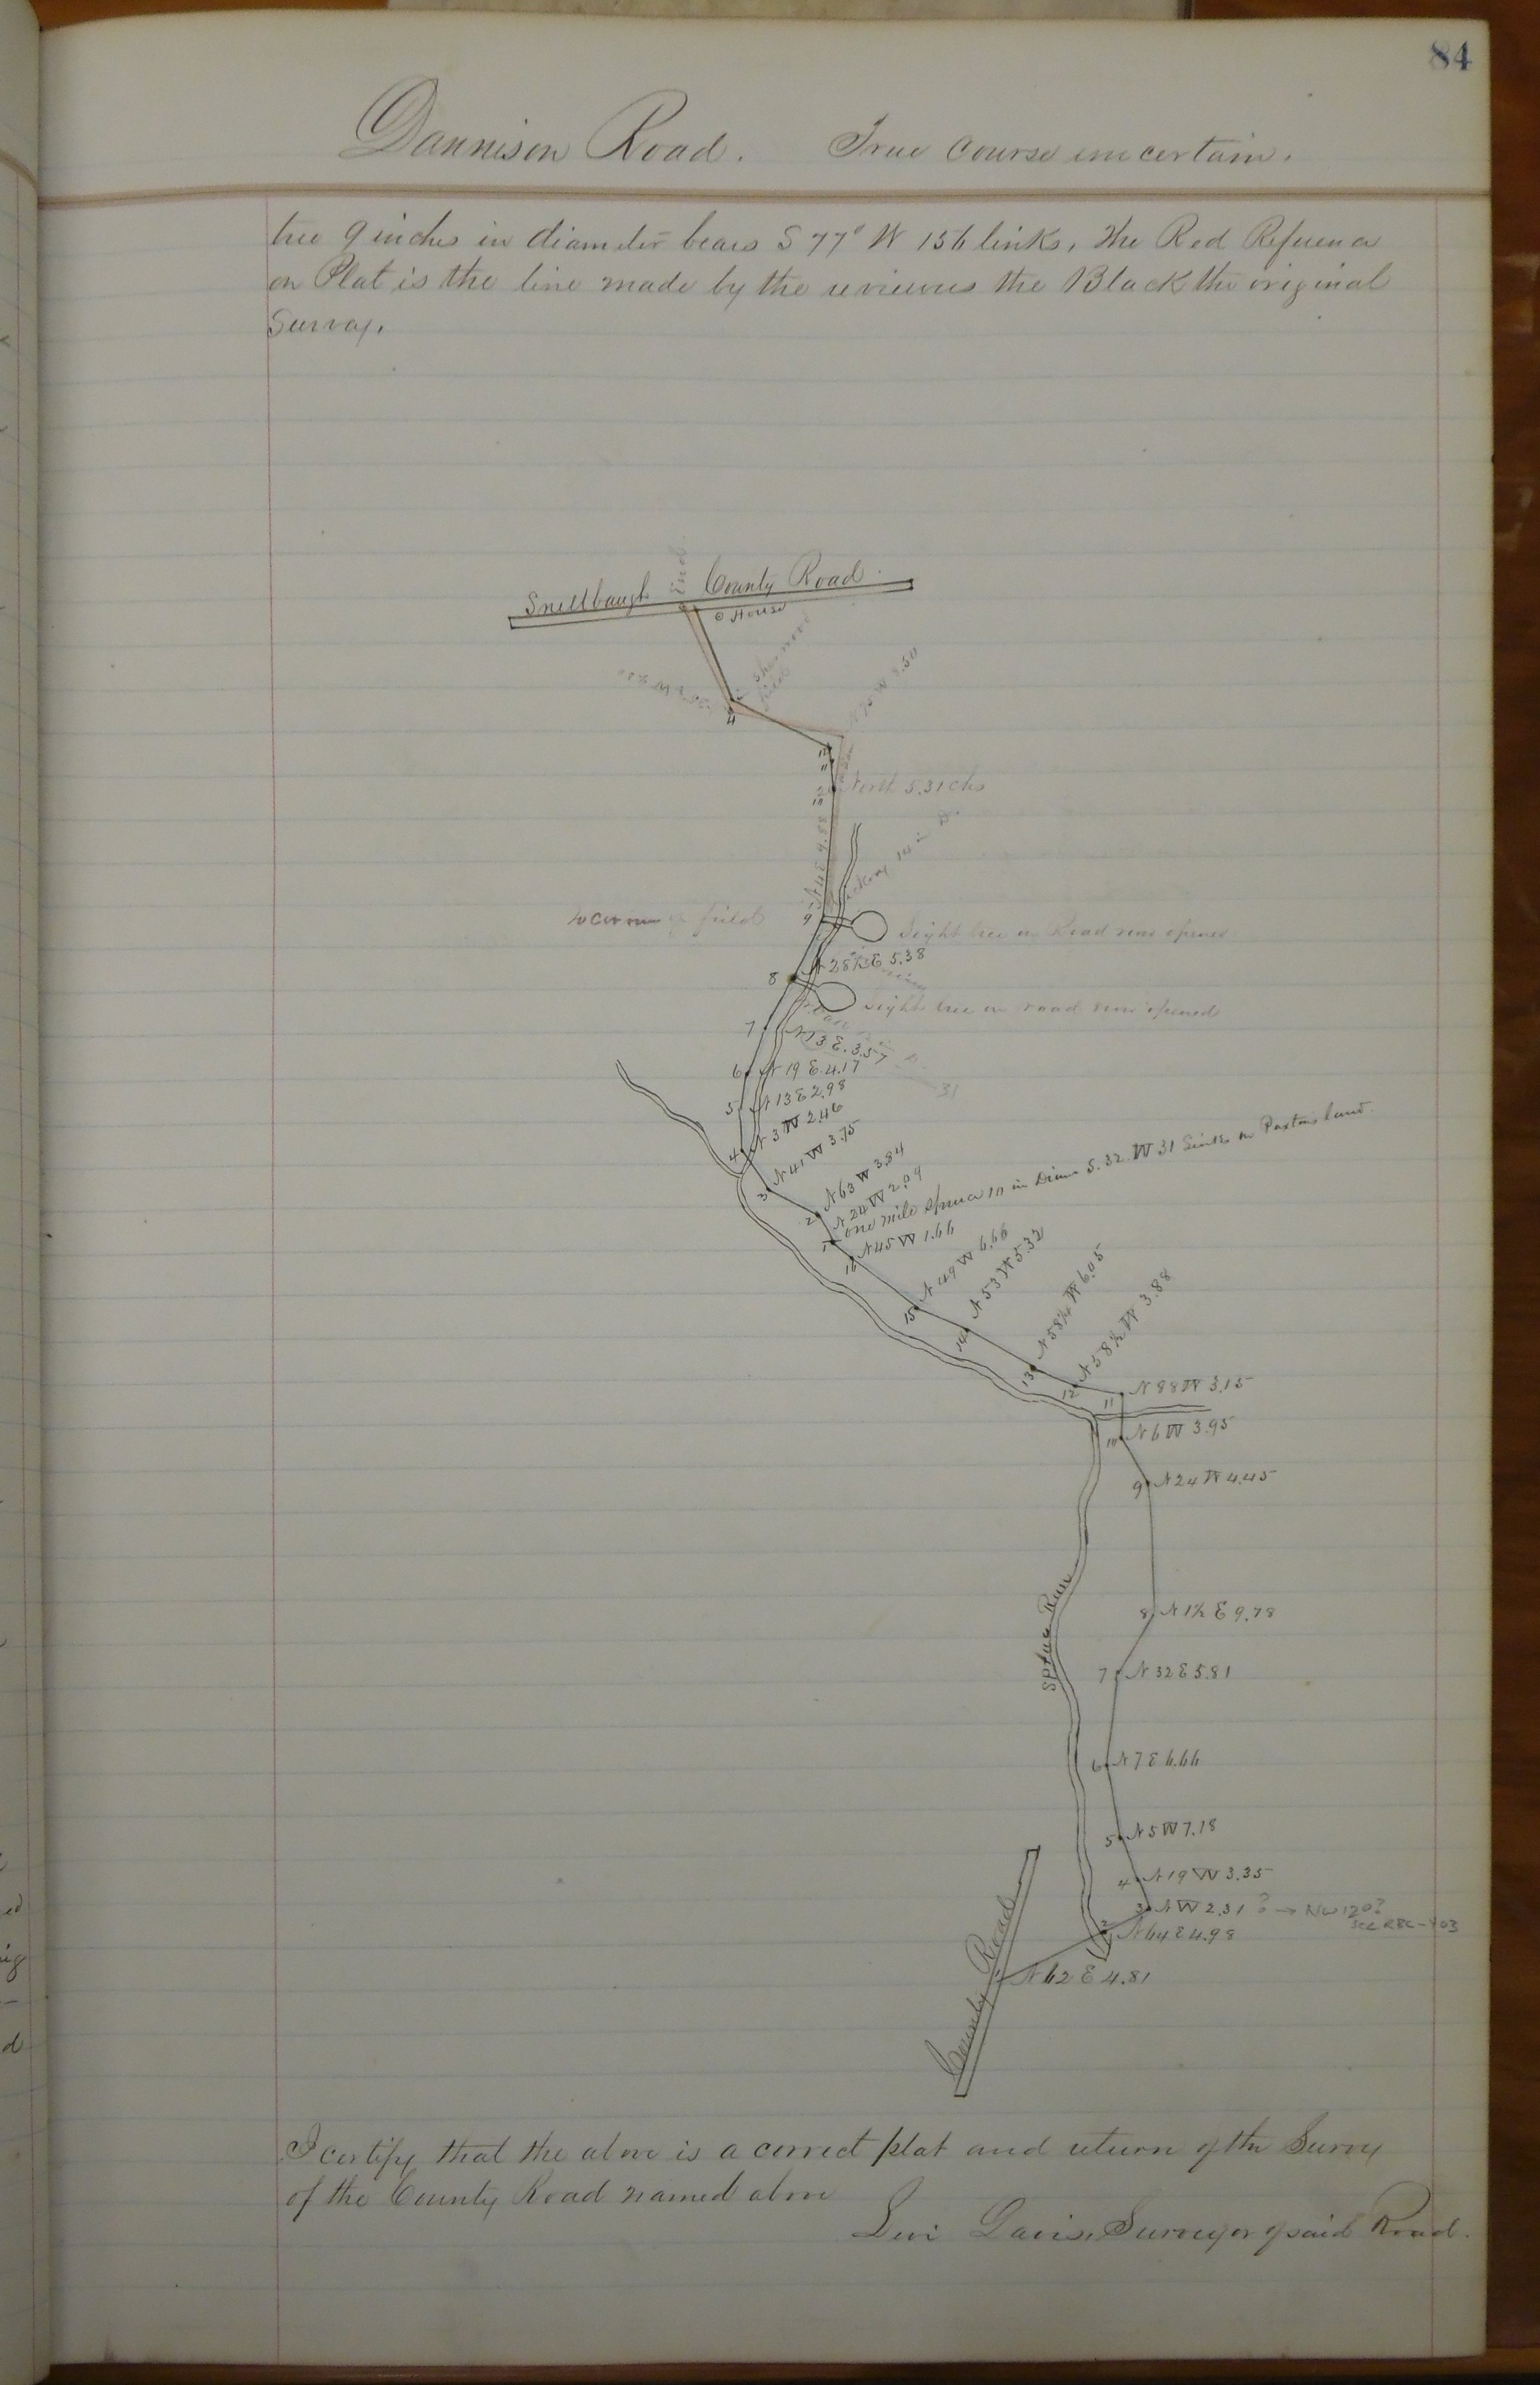 84
Dannison Road. True Course uncertain.
tree 9 inches in diameter bears S 77° W 156 links, The Red Reference
on Plat is the line made by the reviewers the Black the original
Survay.
Snellbaugh County Road
End
House
4
12
11
10
North 5.31 chs
N 4 E 9.88
Hickory 14 in D.
W Corner of field
9
Sight tree on Road now opened
N 28½ E 5.38
8
Sight tree on road now opened
7
N 13 E. 3.57
6 N 19 E 4.17
31
5 N 13 E 2.98
N 3 W 2.46
4
N 41 W 3.75
3
N 63 W 3.84
2
N 24 W 2.09
one mile Spruce 10 in Diam S. 32. W 31 Links on Paxtons land.
1
N 45 W 1.66
16
N 49 W 6.66
15
N 53 W 5.32
14
N 58¼ W 6.05
13
N 58½ W 3.88
12
11 N 88 W 3.15
10 N 6 W 3.95
9 N 24 W 4.45
8 N 1½ E 9.78
Spruce Run
7 N 32 E 5.81
6 N 7 E 6.66
5 N 5 W 7.18
4 N 19 W 3.35
3 N W 2.31 ? → NW 120?
see RBC-403
2 N 64 E 4.98
1 N 62 E 4.81
County Road
I certify that the above is a correct plat and return of the Survey
of the County Road named above
Levi Davis, Surveyor of said Road.